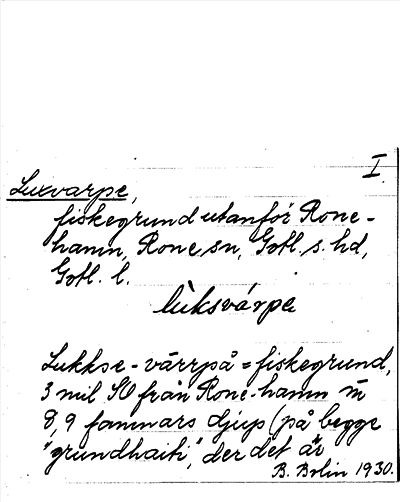 I
Luxvarpe,
fiskegrund utanför Rone-
hamn, Rone sn, Gotl. s. hd,
Gotl. l.
lùksvárpe
Lukkse-värrpå = fiskegrund,
3 mil SO från Rone-hamn m
8,9 fammars djup (på begge
"grundhaiti", der det är
B. Bolin 1930.